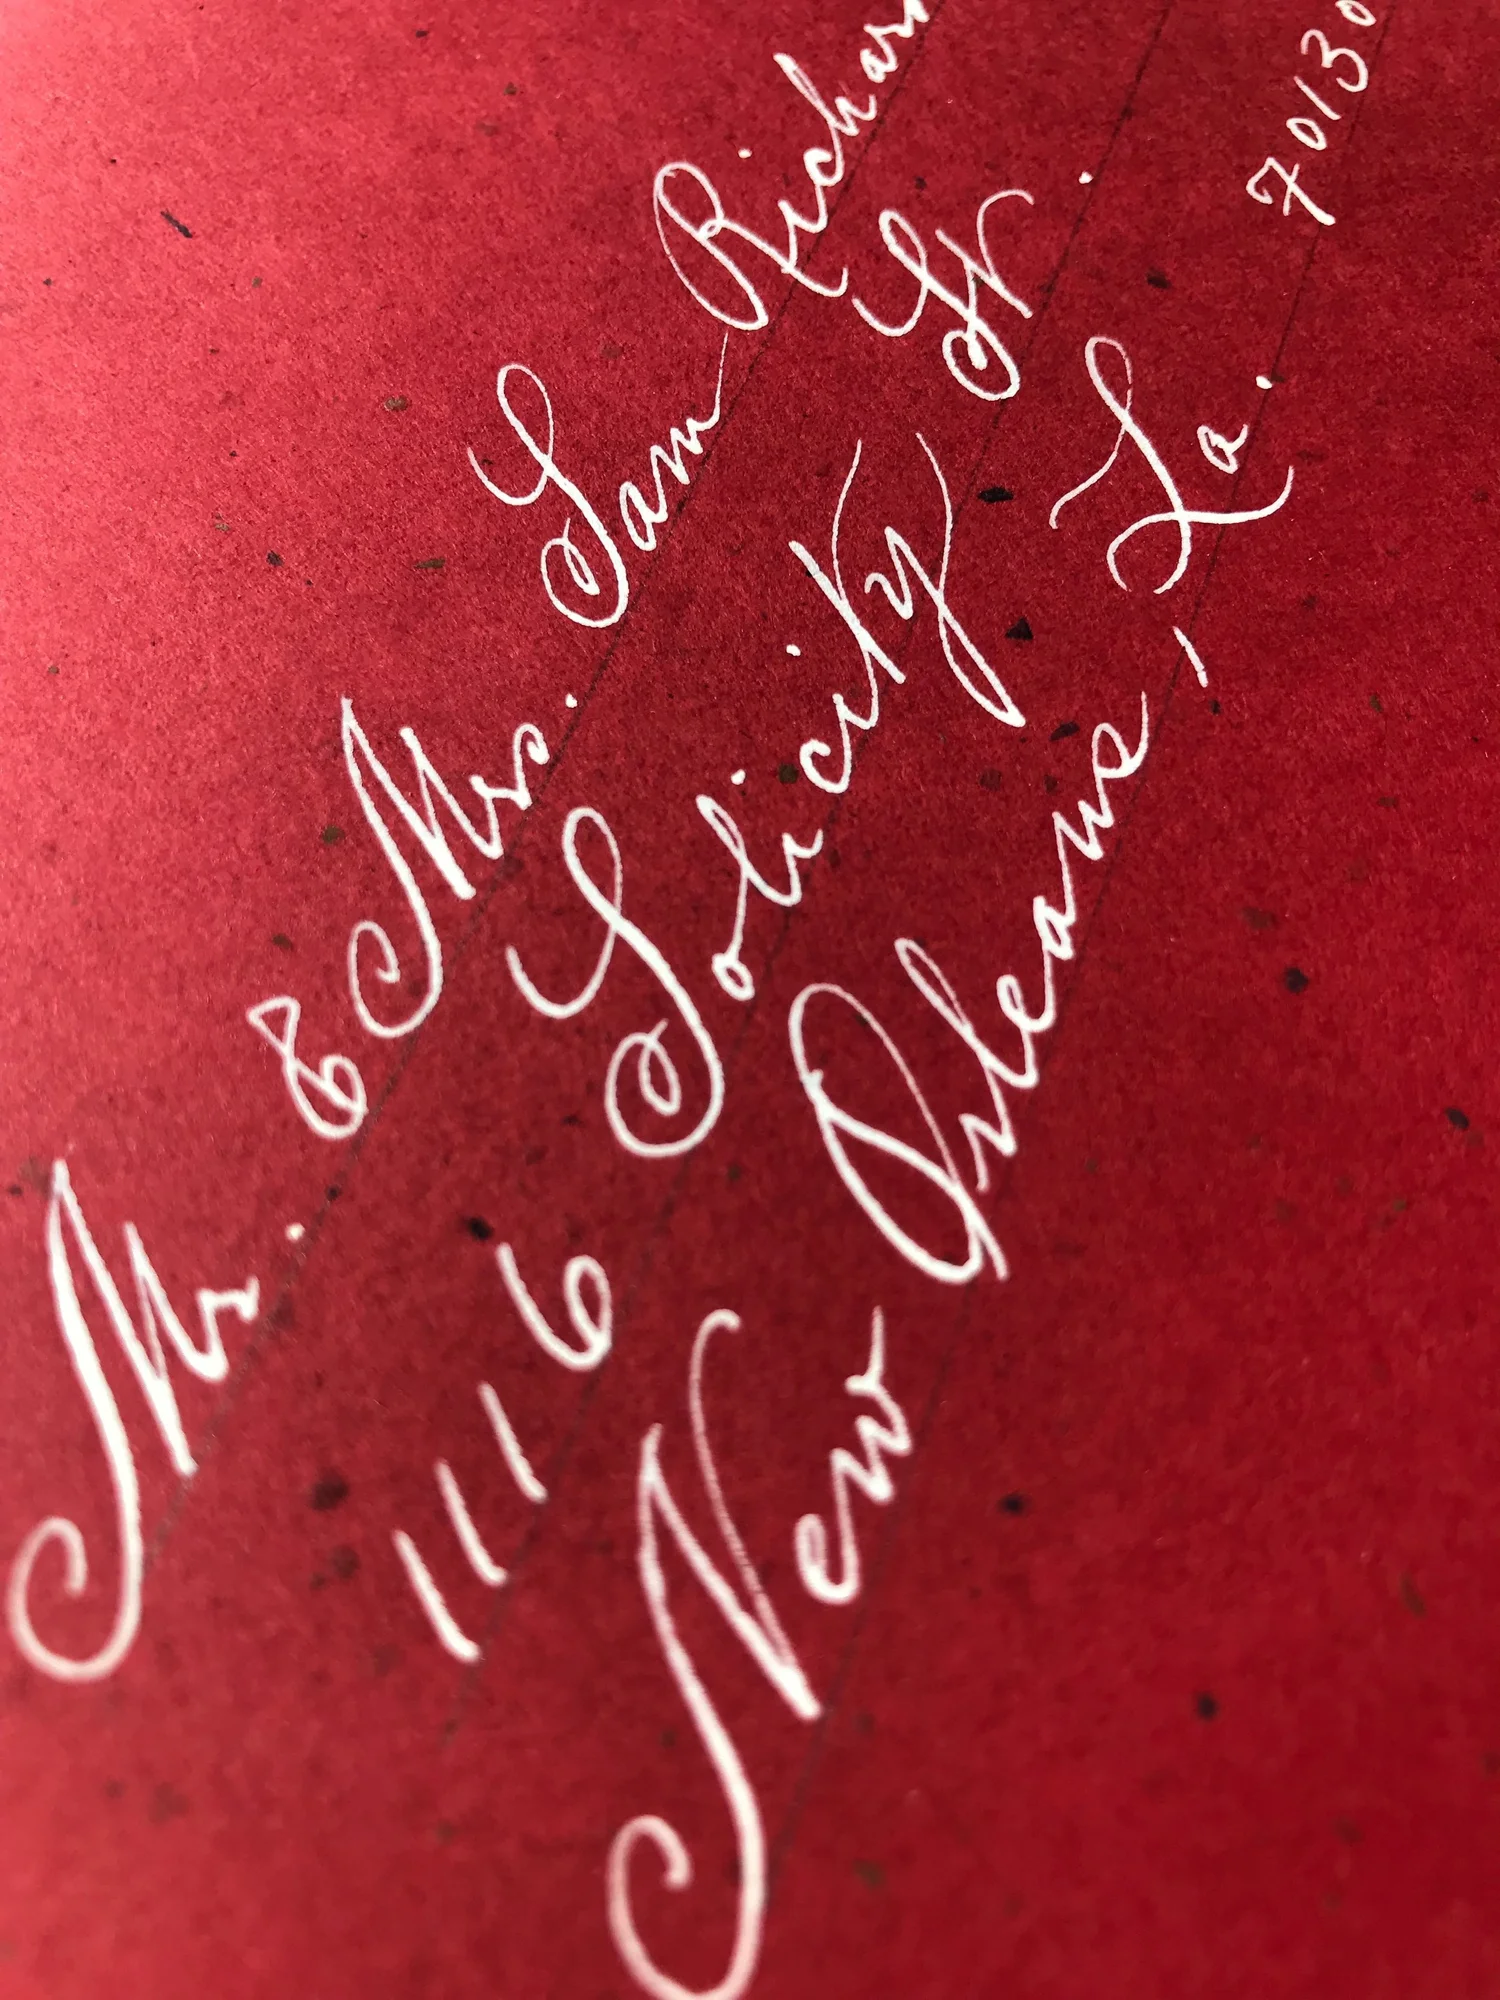 Mr. & Mrs. Sam Richar
1116 Solicity St.
New Orleans, La. 70130